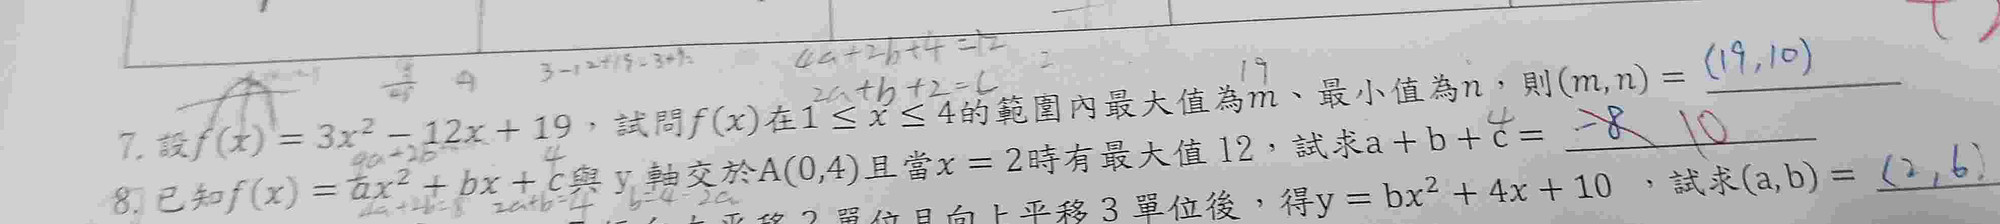 4a+2b+4=12
2a+b+2=6
19
7. 設f(x) = 3x² − 12x + 19，試問f(x)在1 ≤ x ≤ 4的範圍內最大值為m、最小值為n，則(m,n) = (19,10)
4 4
8. 已知f(x) = ax² + bx + c與 y 軸交於A(0,4)且當x = 2時有最大值 12，試求a + b + c = -8 10
2a+b=4 b=4-2a
平移 2 單位且向上平移 3 單位後，得y = bx² + 4x + 10 ，試求(a,b) = (2,6)